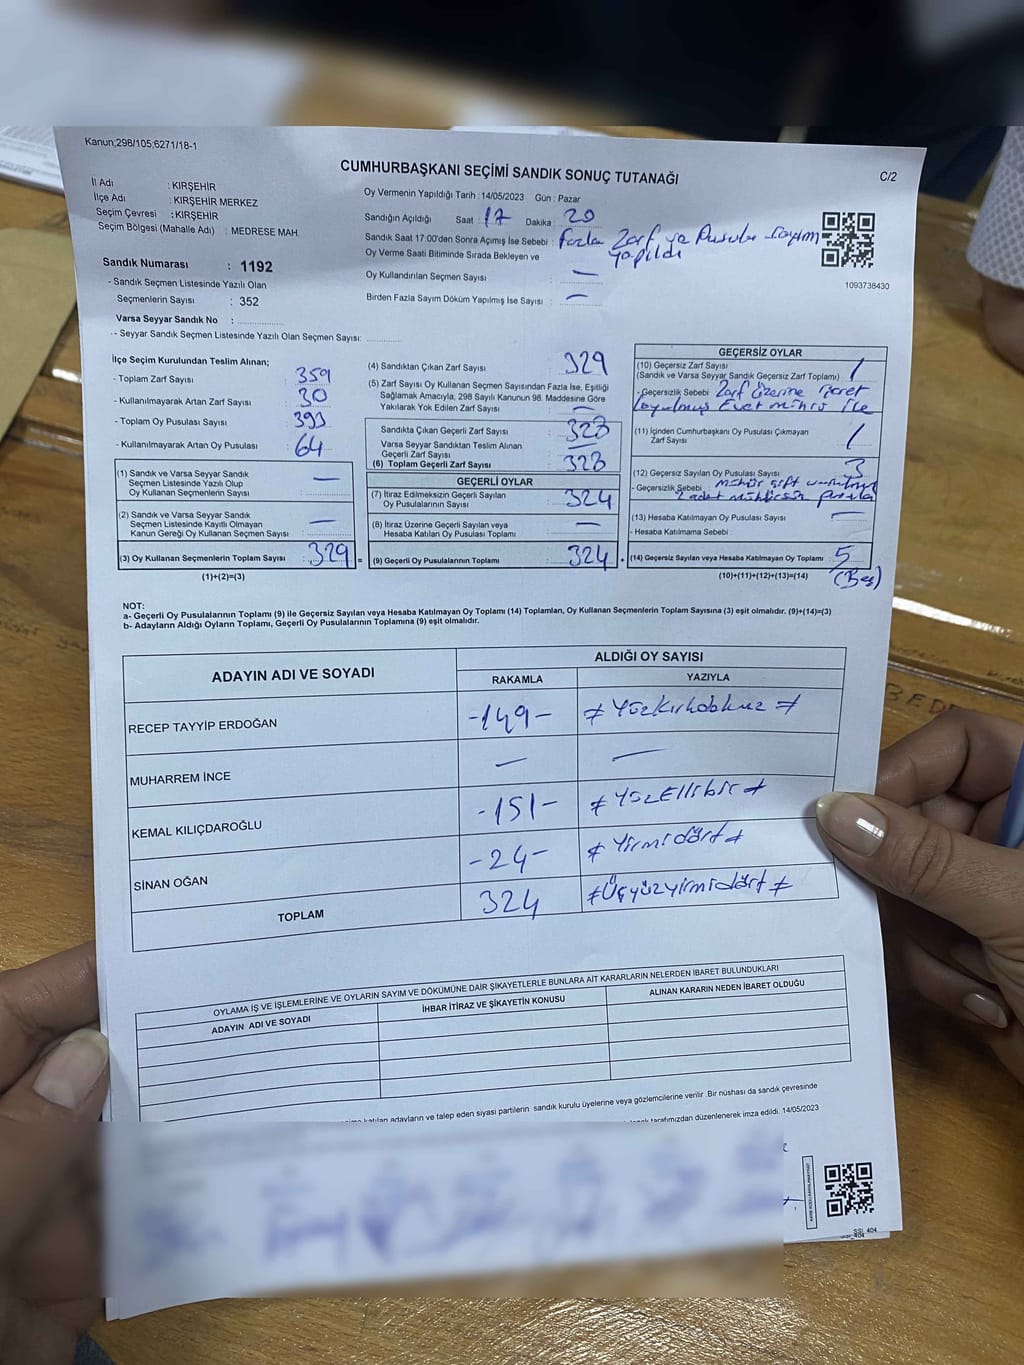 Kanun;298/105;6271/18-1
CUMHURBAŞKANI SEÇİMİ SANDIK SONUÇ TUTANAĞI
C/2
İl Adı : KIRŞEHİR
İlçe Adı : KIRŞEHİR MERKEZ
Seçim Çevresi : KIRŞEHİR
Seçim Bölgesi (Mahalle Adı) : MEDRESE MAH.
Sandık Numarası : 1192
- Sandık Seçmen Listesinde Yazılı Olan
Seçmenlerin Sayısı : 352
Varsa Seyyar Sandık No :
- Seyyar Sandık Seçmen Listesinde Yazılı Olan Seçmen Sayısı:
Oy Vermenin Yapıldığı Tarih : 14/05/2023 Gün : Pazar
Sandığın Açıldığı Saat : 17 Dakika : 20
Sandık Saat 17:00'den Sonra Açılmış İse Sebebi : Fazla Zarf ve Pusula Sayım
yapıldı
Oy Verme Saati Bitiminde Sırada Bekleyen ve
Oy Kullandırılan Seçmen Sayısı : —
Birden Fazla Sayım Döküm Yapılmış İse Sayısı : —
1093738430
İlçe Seçim Kurulundan Teslim Alınan;
- Toplam Zarf Sayısı : 359
- Kullanılmayarak Artan Zarf Sayısı : 30
- Toplam Oy Pusulası Sayısı : 393
- Kullanılmayarak Artan Oy Pusulası : 64
(1) Sandık ve Varsa Seyyar Sandık
Seçmen Listesinde Yazılı Olup
Oy Kullanan Seçmenlerin Sayısı : —
(2) Sandık ve Varsa Seyyar Sandık
Seçmen Listesinde Kayıtlı Olmayan
Kanun Gereği Oy Kullanan Seçmen Sayısı : —
(3) Oy Kullanan Seçmenlerin Toplam Sayısı : 329 =
(1)+(2)=(3)
(4) Sandıktan Çıkan Zarf Sayısı : 329
(5) Zarf Sayısı Oy Kullanan Seçmen Sayısından Fazla İse, Eşitliği
Sağlamak Amacıyla; 298 Sayılı Kanunun 98. Maddesine Göre
Yakılarak Yok Edilen Zarf Sayısı : —
Sandıkta Çıkan Geçerli Zarf Sayısı : 328
Varsa Seyyar Sandıktan Teslim Alınan
Geçerli Zarf Sayısı : —
(6) Toplam Geçerli Zarf Sayısı : 328
GEÇERLİ OYLAR
(7) İtiraz Edilmeksizin Geçerli Sayılan
Oy Pusulasının Sayısı : 324
(8) İtiraz Üzerine Geçerli Sayılan veya
Hesaba Katılan Oy Pusulası Toplamı : —
(9) Geçerli Oy Pusulalarının Toplamı : 324 +
GEÇERSİZ OYLAR
(10) Geçersiz Zarf Sayısı
(Sandık ve Varsa Seyyar Sandık Geçersiz Zarf Toplamı) : 1
- Geçersizlik Sebebi : Zarf üzerine işaret
koyulmuş Evet mührü ile
(11) İçinden Cumhurbaşkanı Oy Pusulası Çıkmayan
Zarf Sayısı : 1
(12) Geçersiz Sayılan Oy Pusulası Sayısı : 3
- Geçersizlik Sebebi : mühür çift vurulmuş
2 adet mühürsüz pusula
(13) Hesaba Katılmayan Oy Pusulası Sayısı : —
- Hesaba Katılmama Sebebi :
(14) Geçersiz Sayılan veya Hesaba Katılmayan Oy Toplamı : 5
(Beş)
(10)+(11)+(12)+(13)=(14)
NOT:
a- Geçerli Oy Pusulalarının Toplamı (9) ile Geçersiz Sayılan veya Hesaba Katılmayan Oy Toplamı (14) Toplamları, Oy Kullanan Seçmenlerin Toplam Sayısına (3) eşit olmalıdır. (9)+(14)=(3)
b- Adayların Aldığı Oyların Toplamı, Geçerli Oy Pusulalarının Toplamına (9) eşit olmalıdır.
ADAYIN ADI VE SOYADI
ALDIĞI OY SAYISI
RAKAMLA YAZIYLA
RECEP TAYYİP ERDOĞAN -149- ≠ Yüzkırkdokuz ≠
MUHARREM İNCE — —
KEMAL KILIÇDAROĞLU -151- ≠ YüzEllibir ≠
SİNAN OĞAN -24- ≠ Yirmidört ≠
TOPLAM 324 ≠ Üçyüzyirmidört ≠
OYLAMA İŞ VE İŞLEMLERİNE VE OYLARIN SAYIM VE DÖKÜMÜNE DAİR ŞİKAYETLERLE BUNLARA AİT KARARLARIN NELERDEN İBARET BULUNDUKLARI
ADAYIN ADI VE SOYADI İHBAR İTİRAZ VE ŞİKAYETİN KONUSU ALINAN KARARIN NEDEN İBARET OLDUĞU
katılan adayların ve talep eden siyasi partilerin sandık kurulu üyelerine veya gözlemcilerine verilir. Bir nüshası da sandık çevresinde
tarafımızdan düzenlenerek imza edildi. 14/05/2023
SSİ_404